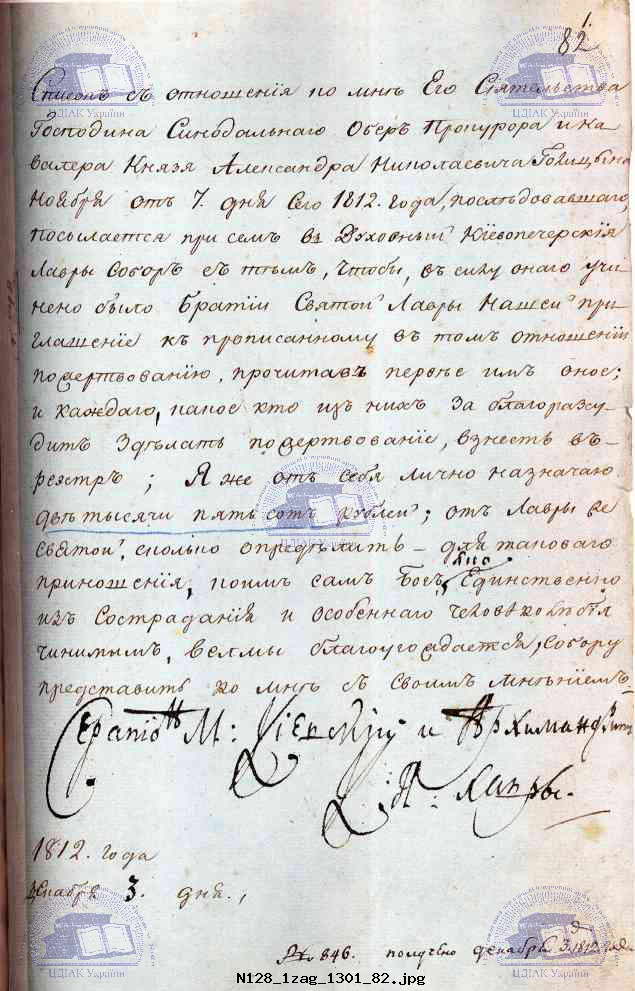 1.
82
Списокъ съ отношенія ко мнѣ Его Сіятельства
Господина Синодальнаго Оберъ Прокурора и ка-
валера Князя Александра Николаевича Голицына
Ноября отъ 7. дня сего 1812. года, послѣдовавшаго,
посылается при семъ въ Духовный Кіевопечерскія
Лавры Соборъ съ тѣмъ, чтобы, въ силу онаго учи-
нено было Братіи Святой Лавры нашей при-
глашеніе къ прописанному въ томъ отношеніи
пожертвованію, прочитавъ первѣе имъ оное;
и каждаго, какое кто изъ нихъ за благоразсу-
дитъ здѣлать пожертвованіе, взнесть въ
реэстръ; Я же отъ себя лично назначаю
двѣ тысячи пять сотъ рублей; отъ Лавры же
Святой, сколько опредѣлить для таковаго
приношенія, коимъ самъ Богъ, яко Единственно
изъ состраданія и особеннаго человѣколюбія
чинимымъ, велмы благоугождается, Собору
представить ко мнѣ съ своимъ мнѣніемъ
Серапіонъ М: Кіевскій и Архимандритъ
К. П: Лавры.
1812. года
декабря 3. дня.,
№ 846. получено декабря 3 д 1812 года
ЦДІАК України
ЦДІАК України
ЦДІАК України
ЦДІАК України
ЦДІАК України
N128_1zag_1301_82.jpg